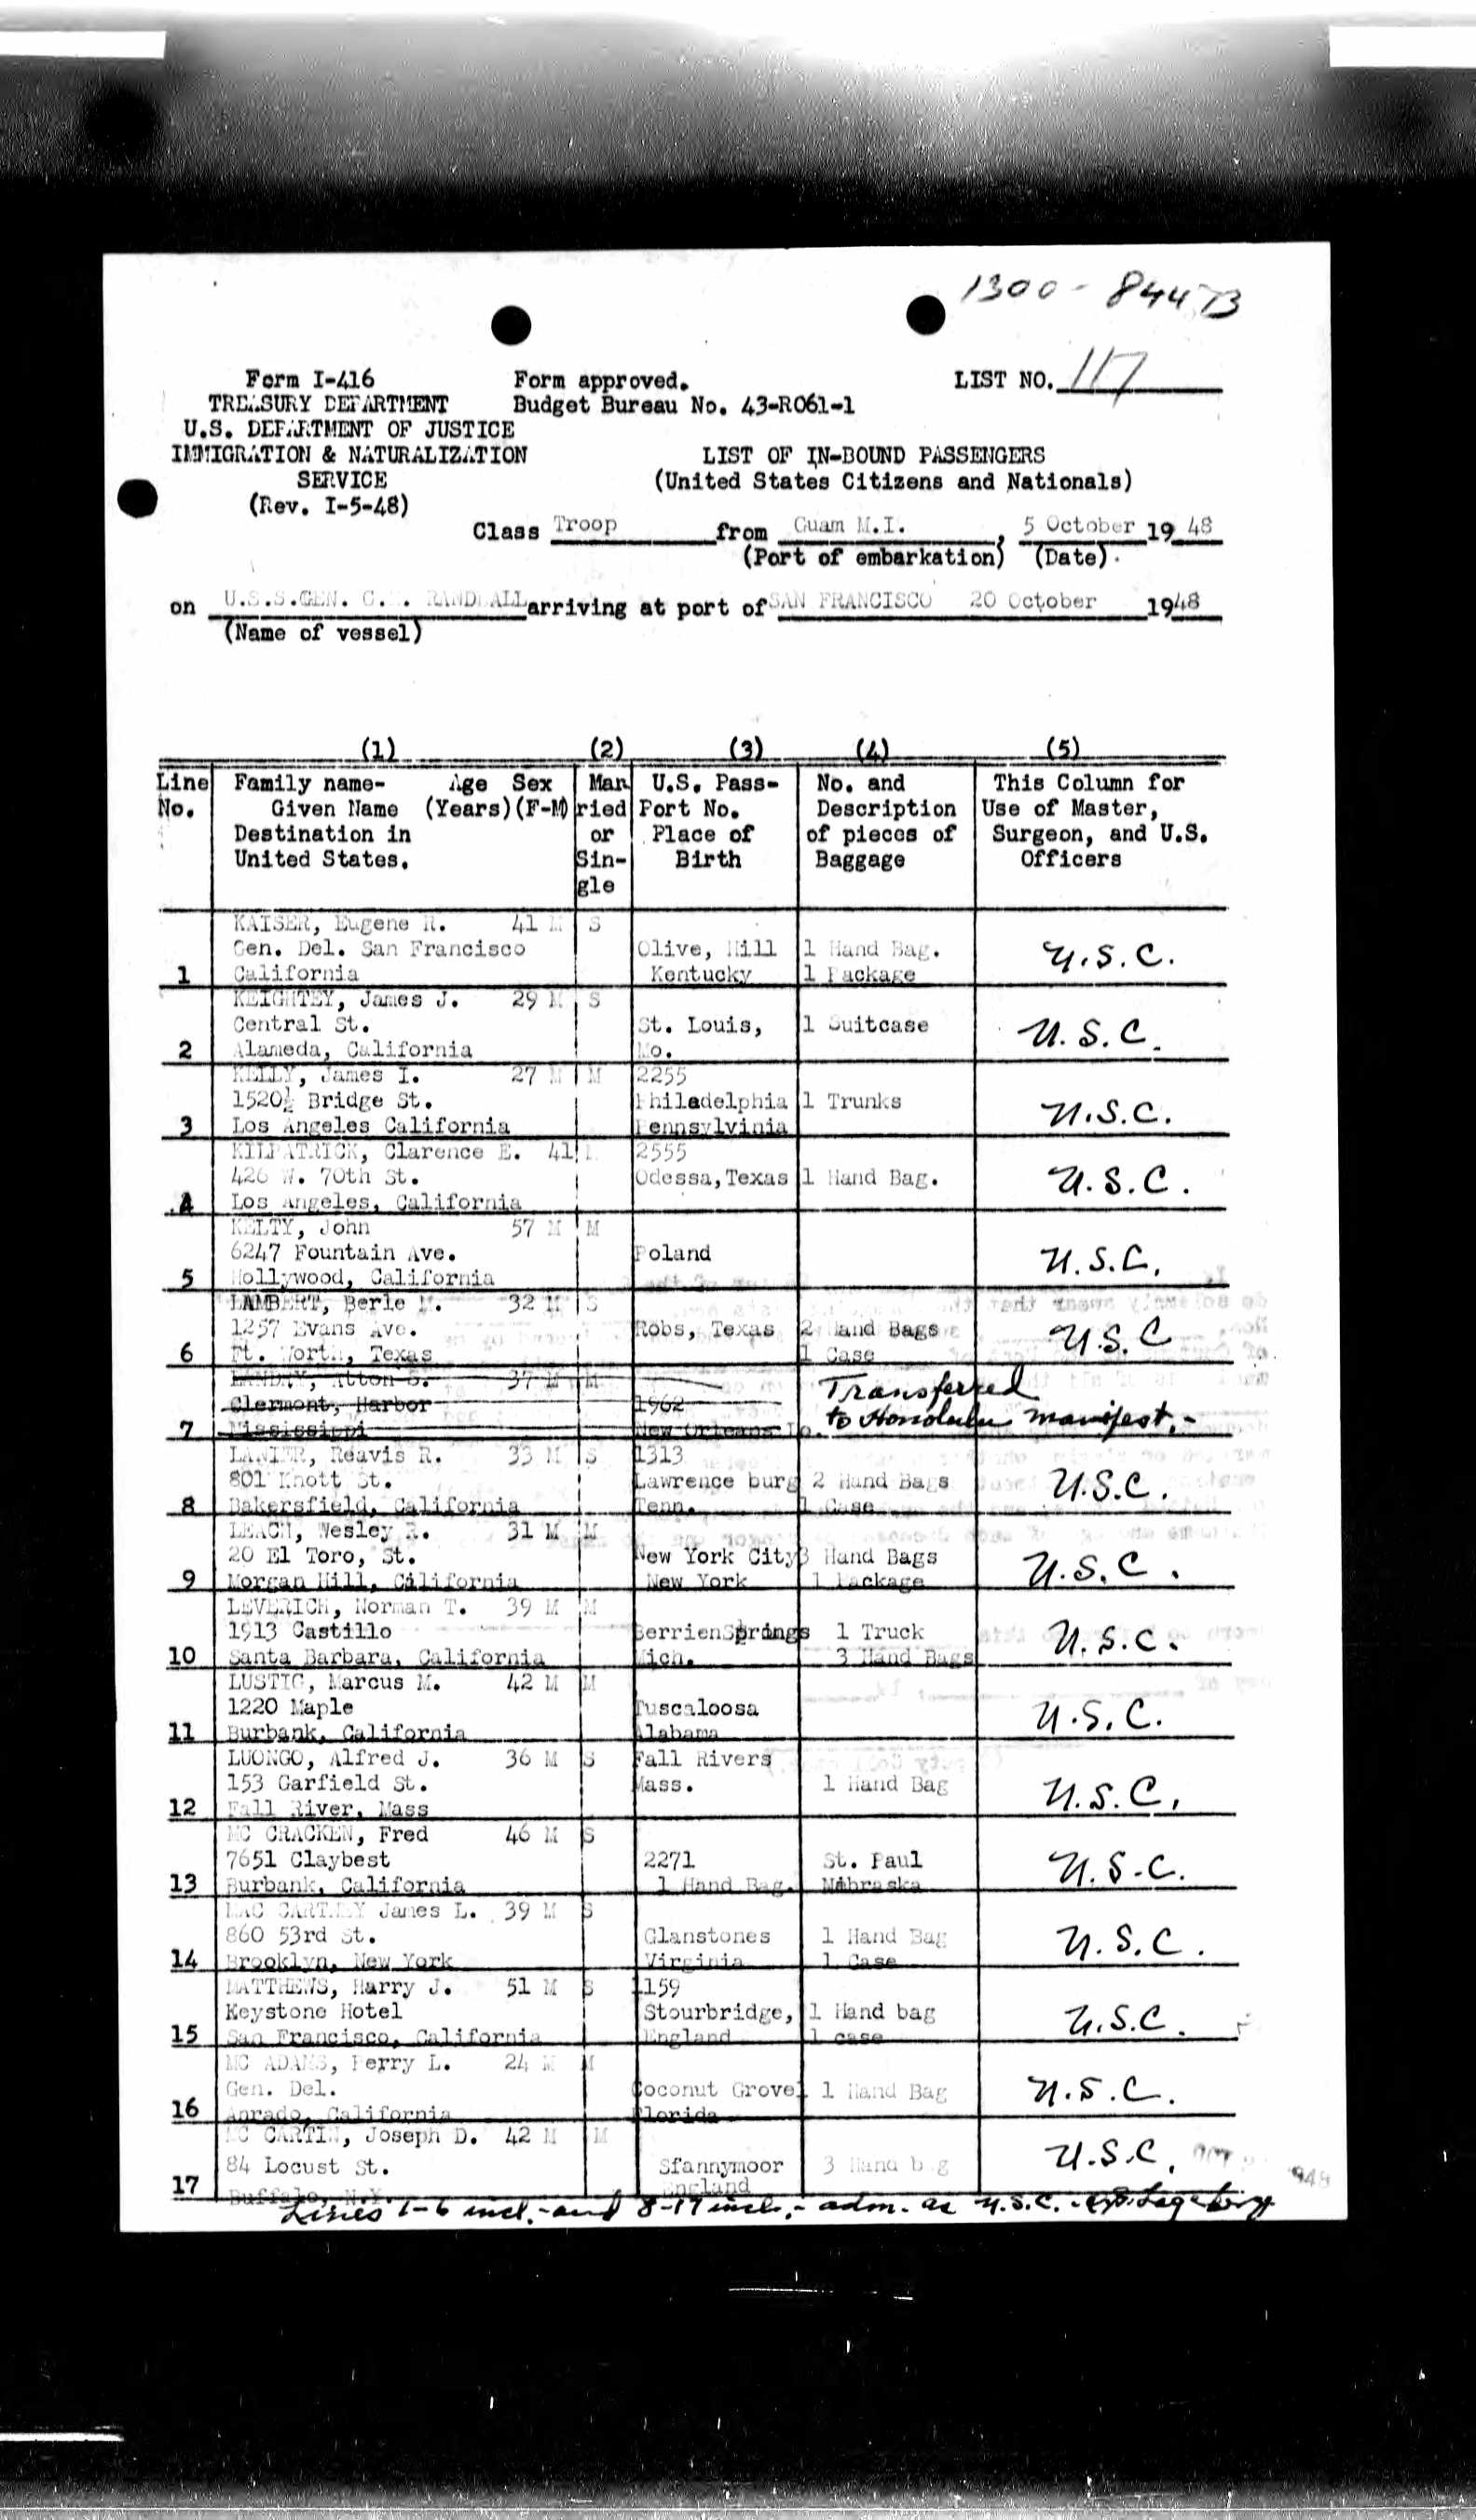 1300 - 844 B
Form I-416 Form approved. LIST NO. 117
TREASURY DEPARTMENT Budget Bureau No. 43-R061-1
U.S. DEPARTMENT OF JUSTICE
IMMIGRATION & NATURALIZATION LIST OF IN-BOUND PASSENGERS
SERVICE (United States Citizens and Nationals)
(Rev. I-5-48)
Class Troop from Guam M.I. , 5 October 19 48
(Port of embarkation) (Date)
on U.S.S.GEN. RANDALL arriving at port of SAN FRANCISCO 20 October 1948
(Name of vessel)
(1) (2) (3) (4) (5)
Line Family name- Age Sex Mar U.S. Pass- No. and This Column for
No. Given Name (Years) (F-M) ried Port No. Description Use of Master,
Destination in or Place of of pieces of Surgeon, and U.S.
United States. Sin- Birth Baggage Officers
gle
KAISER, Eugene R. 41 M S
Gen. Del. San Francisco Olive, Hill 1 Hand Bag. U.S.C.
1 California Kentucky 1 Package
KEIGHTEY, James J. 29 M S
Central St. St. Louis, 1 Suitcase U.S.C.
2 Alameda, California Mo.
KELLY, James I. 27 M M 2255
1520½ Bridge St. Philadelphia 1 Trunks U.S.C.
3 Los Angeles California Pennsylvinia
KILPATRICK, Clarence E. 41 2555
426 W. 70th St. Odessa,Texas 1 Hand Bag. U.S.C.
4 Los Angeles, California
KELTY, John 57 M M
6247 Fountain Ave. Poland U.S.C.
5 Hollywood, California
LAMBERT, Berle M. 32 M S
1257 Evans Ave. Robs, Texas 2 Hand Bags U.S.C
6 Ft. Worth, Texas 1 Case
LANDRY, Atton S. 37 M M Transferred
Clermont, Harbor 1962 to Honolulu manifest.-
7 Mississippi New Orleans La.
LANIER, Reavis R. 33 M S 1313
801 Knott St. Lawrence burg 2 Hand Bags U.S.C.
8 Bakersfield, California Tenn. 1 Case
LEACH, Wesley R. 31 M M
20 El Toro, St. New York City 3 Hand Bags U.S.C.
9 Morgan Hill, California New York 1 Package
LEVERICH, Norman T. 39 M M
1913 Castillo BerrienSprings 1 Truck U.S.C.
10 Santa Barbara, California Mich. 3 Hand Bags
LUSTIG, Marcus M. 42 M M
1220 Maple Tuscaloosa U.S.C.
11 Burbank, California Alabama
LUONGO, Alfred J. 36 M S Fall Rivers
153 Garfield St. Mass. 1 Hand Bag U.S.C.
12 Fall River, Mass
MC CRACKEN, Fred 46 M S
7651 Claybest 2271 St. Paul U.S.C.
13 Burbank, California 1 Hand Bag. Nebraska
MAC CARTNEY James L. 39 M S
860 53rd St. Glanstones 1 Hand Bag U.S.C.
14 Brooklyn, New York Virginia 1 Case
MATTHEWS, Harry J. 51 M S 1159
Keystone Hotel Stourbridge, 1 Hand bag U.S.C.
15 San Francisco, California England 1 case
MC ADAMS, Perry L. 24 M M
Gen. Del. Coconut Grove 1 Hand Bag U.S.C.
16 Anrado, California Florida
MC CARTIN, Joseph D. 42 M M
84 Locust St. Sfannymoor 3 Hand bag U.S.C.
17 Buffalo, N.Y. England
Lines 1-6 incl.- and 8-17 incl.- adm. as U.S.C. -